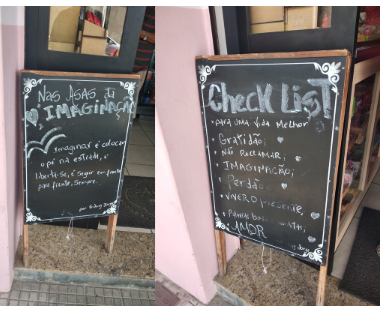 Nas Asas da
IMAGINAÇÃO
Imaginar é colocar
o pé na estrada, é
liberta-se, é seguir em frente
para frente, sempre.
por
Check List
• para uma vida melhor
• Gratidão;
• Não reclamar;
• IMAGINAÇÃO;
• Perdão;
• VIVER O presente,
• Palavras
AMOR